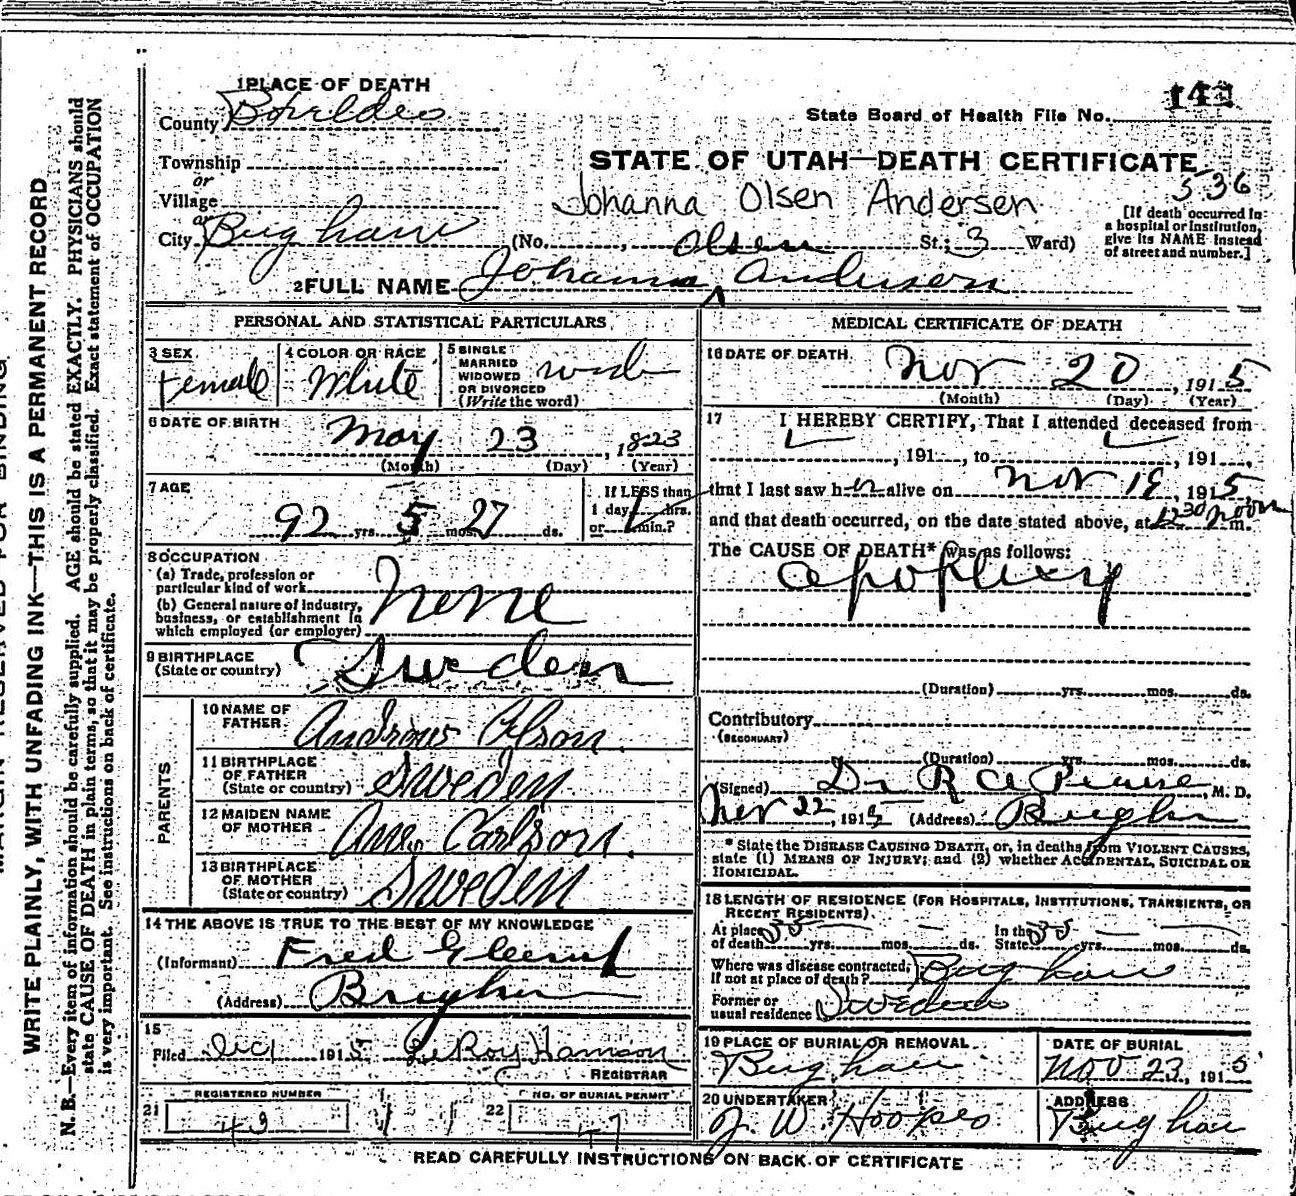 1 PLACE OF DEATH
County Boxelder
State Board of Health File No. 142
Township
or
Village
or
City Brigham
STATE OF UTAH—DEATH CERTIFICATE
536
Johanna Olsen Andersen
(No. , St.; 3 Ward)
[If death occurred in a hospital or institution, give its NAME instead of street and number.]
Olsen
2 FULL NAME Johanna ^ Andersen
PERSONAL AND STATISTICAL PARTICULARS
3 SEX
Female
4 COLOR OR RACE
White
5 SINGLE MARRIED WIDOWED OR DIVORCED (Write the word)
wid
6 DATE OF BIRTH
May 23, 1823
(Month) (Day) (Year)
7 AGE
92 yrs. 5 mos. 27 ds.
If LESS than 1 day, hrs. or min.?
8 OCCUPATION
(a) Trade, profession or particular kind of work
(b) General nature of industry, business, or establishment in which employed (or employer)
None
9 BIRTHPLACE
(State or country)
Sweden
PARENTS
10 NAME OF FATHER
Andrew Olson.
11 BIRTHPLACE OF FATHER (State or country)
Sweden
12 MAIDEN NAME OF MOTHER
Ana Carlson.
13 BIRTHPLACE OF MOTHER (State or country)
Sweden
14 THE ABOVE IS TRUE TO THE BEST OF MY KNOWLEDGE
(Informant) Fred
(Address) Brigham
15
Filed Dec 1 1915 LeRoy
REGISTRAR
REGISTERED NUMBER
21 43
NO. OF BURIAL PERMIT
22 47
MEDICAL CERTIFICATE OF DEATH
16 DATE OF DEATH
Nov 20, 1915
(Month) (Day) (Year)
17 I HEREBY CERTIFY, That I attended deceased from
, 191 , to , 191 ,
that I last saw her alive on Nov 19, 1915,
and that death occurred, on the date stated above, at 12 30 noon m.
The CAUSE OF DEATH* was as follows:
apoplexy
(Duration) yrs. mos. ds.
Contributory
(SECONDARY)
(Duration) yrs. mos. ds.
(Signed) Dr R A Pearse, M. D.
Nov 22, 1915 (Address) Brigham
* State the DISEASE CAUSING DEATH, or, in deaths from VIOLENT CAUSES,
state (1) MEANS OF INJURY; and (2) whether ACCIDENTAL, SUICIDAL OR
HOMICIDAL.
18 LENGTH OF RESIDENCE (FOR HOSPITALS, INSTITUTIONS, TRANSIENTS, OR
RECENT RESIDENTS).
At place of death 35 yrs. mos. ds. In the State 35 yrs. mos. ds.
Where was disease contracted, if not at place of death? Brigham
Former or usual residence Sweden
19 PLACE OF BURIAL OR REMOVAL
Brigham
DATE OF BURIAL
Nov 23, 1915
20 UNDERTAKER
J. W. Hoopes
ADDRESS
Brigham
READ CAREFULLY INSTRUCTIONS ON BACK OF CERTIFICATE
WRITE PLAINLY, WITH UNFADING INK—THIS IS A PERMANENT RECORD
N. B.—Every item of information should be carefully supplied. AGE should be stated EXACTLY. PHYSICIANS should
state CAUSE OF DEATH in plain terms, so that it may be properly classified. Exact statement of OCCUPATION
is very important. See instructions on back of certificate.